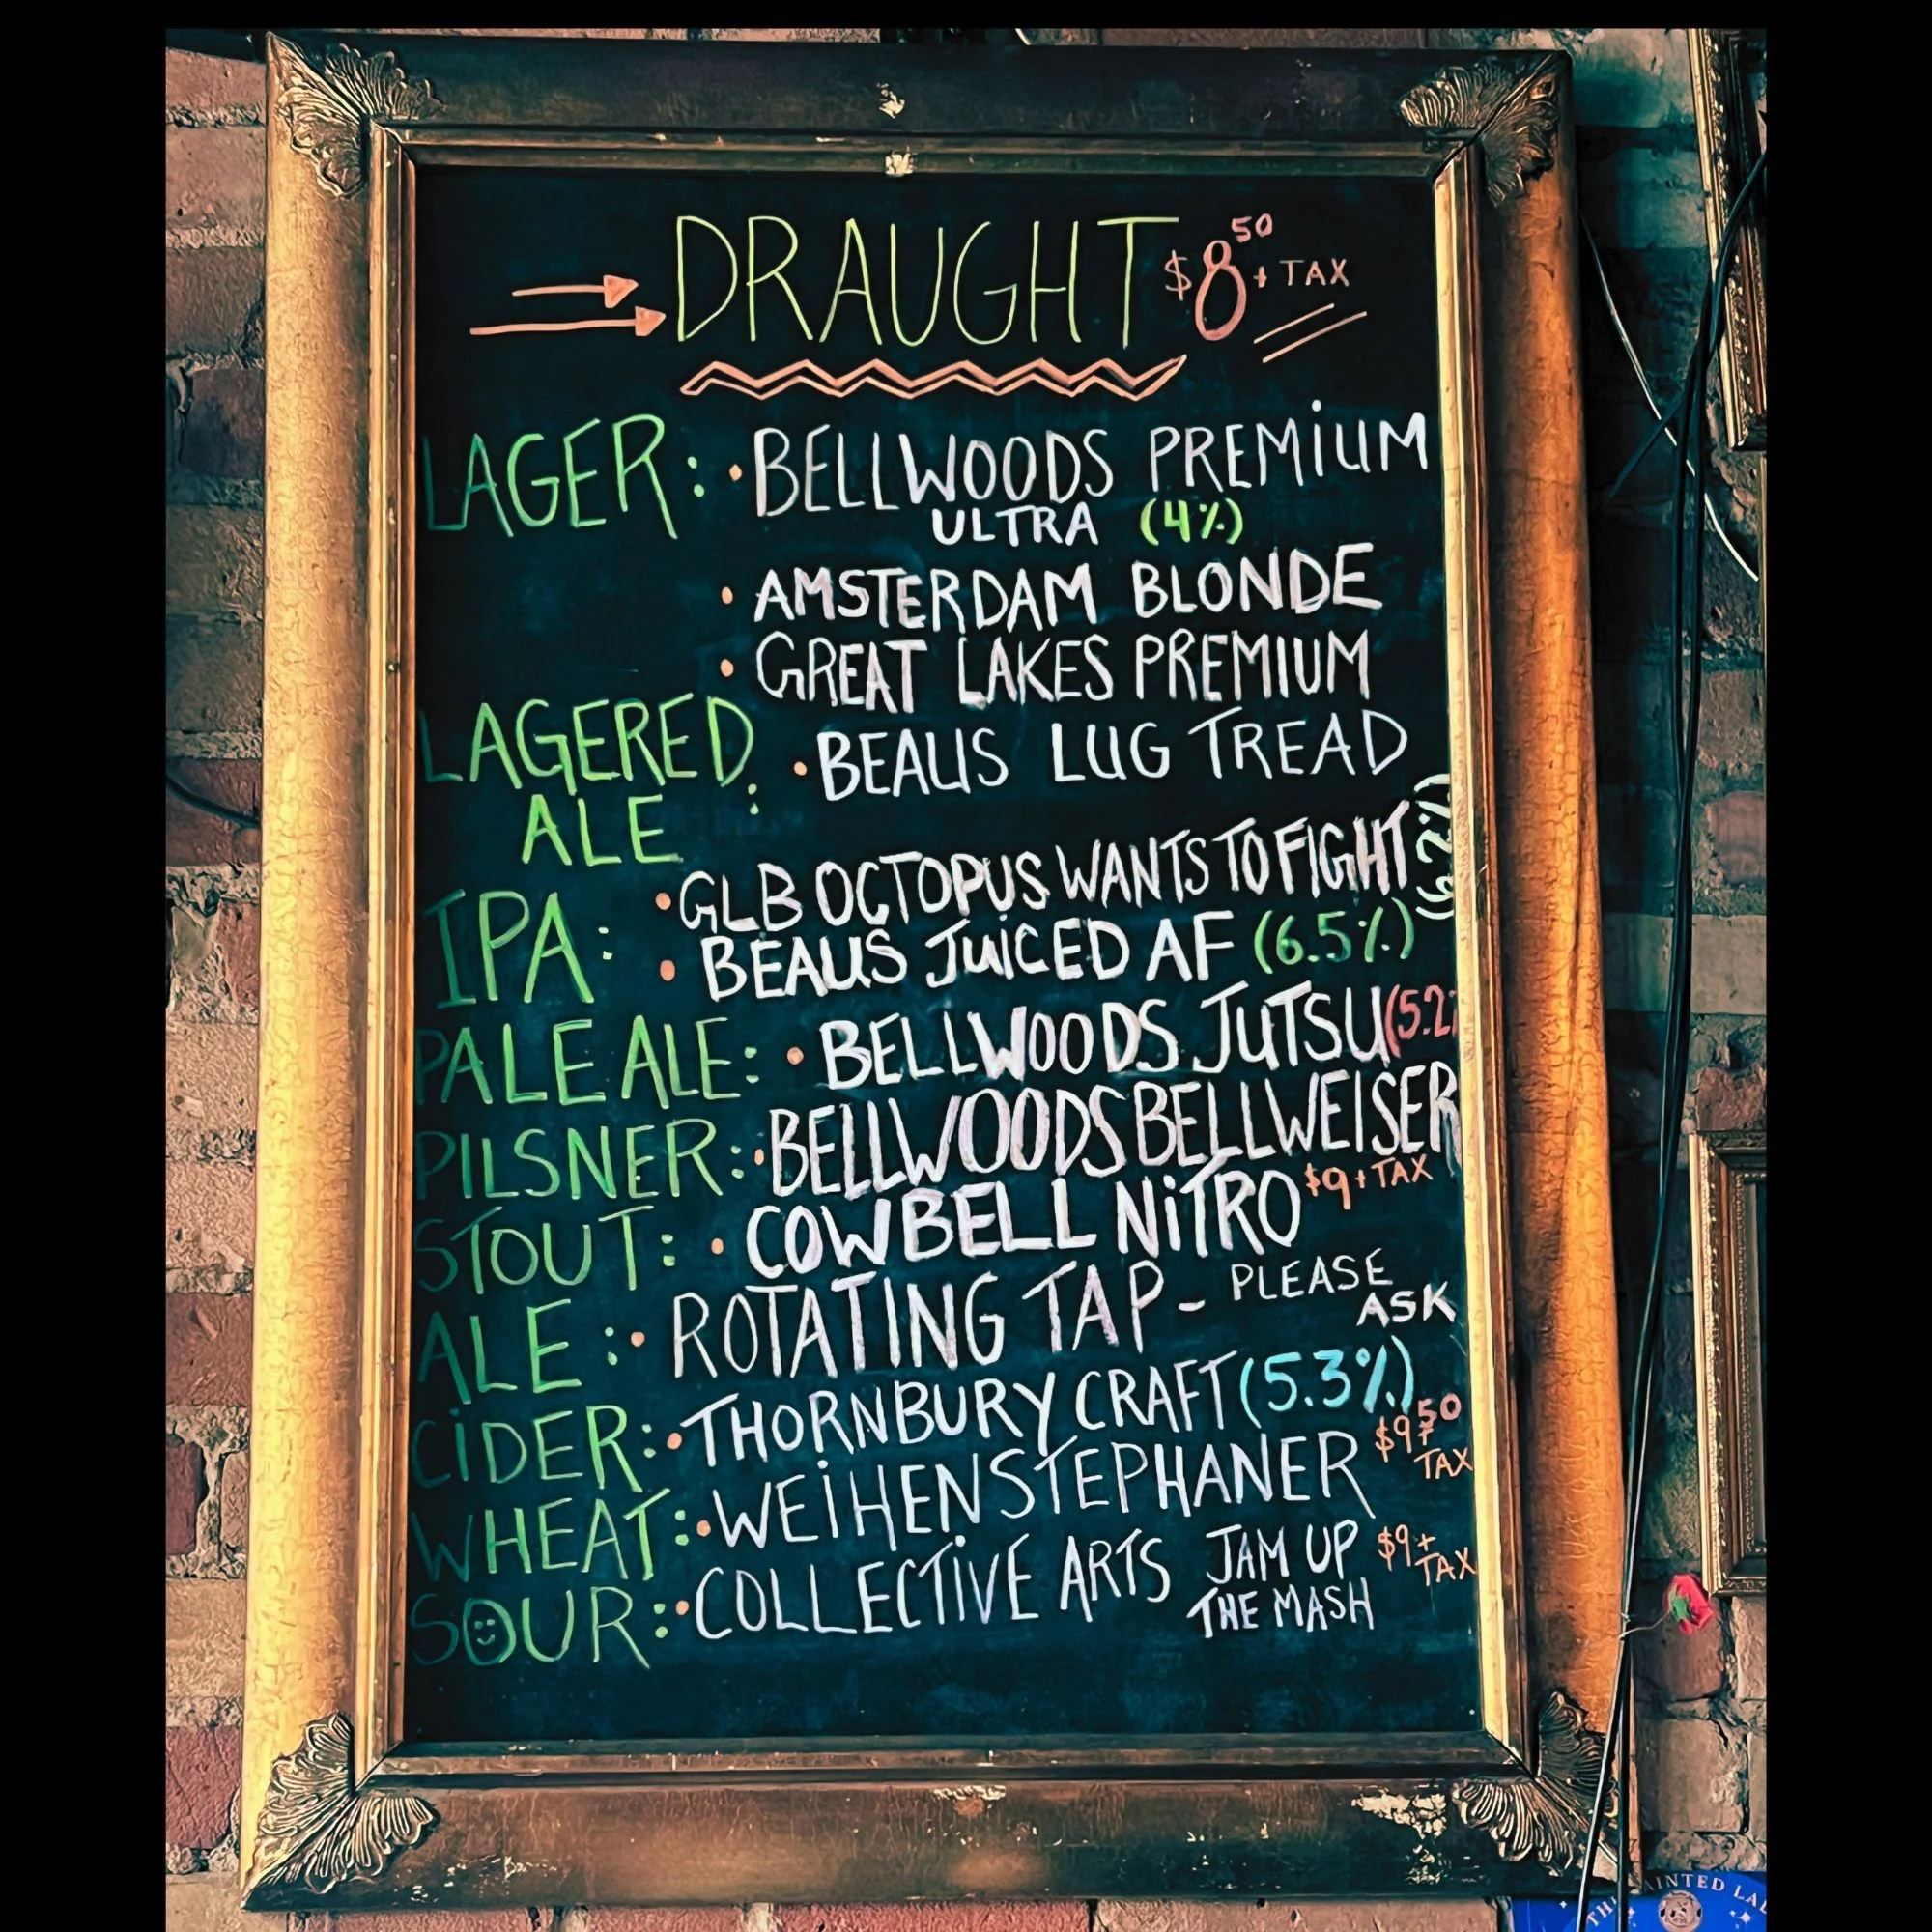 DRAUGHT $8.50 + TAX
LAGER: • BELLWOODS PREMIUM
ULTRA (4%)
• AMSTERDAM BLONDE
• GREAT LAKES PREMIUM
LAGERED
ALE : • BEAUS LUG TREAD
IPA: • GLB OCTOPUS WANTS TO FIGHT (6.2%)
• BEAUS JUICED AF (6.5%)
PALE ALE: • BELLWOODS JUTSU (5.2
PILSNER: • BELLWOODS BELLWEISER
STOUT: • COWBELL NITRO $9 + TAX
ALE: • ROTATING TAP - PLEASE
ASK
CIDER: • THORNBURY CRAFT (5.3%)
WHEAT: • WEIHENSTEPHANER $9.50 + TAX
SOUR: • COLLECTIVE ARTS JAM UP
THE MASH $9 + TAX
AINTED LA